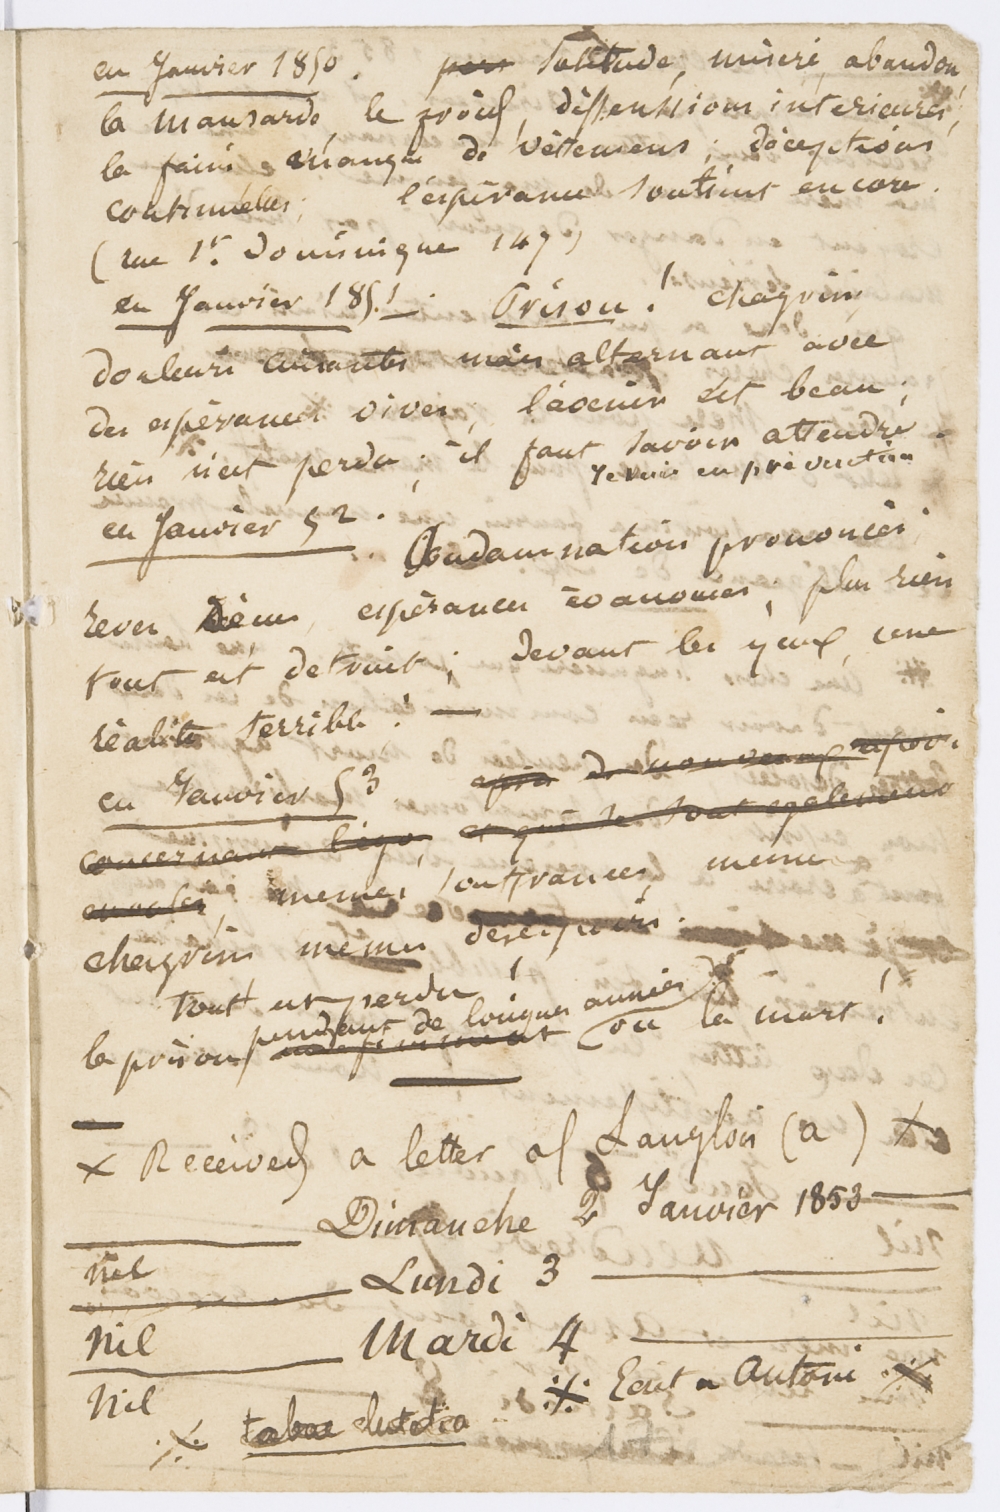 en Janvier 1850. solitude, misere, abandon
la mansarde, le froid, dissenssions interieures,
la faim manque de vêtemens; déceptions
continuelles; l'espérance soutient encore.
(rue St. Dominique 147)
en Janvier 1851. Prison! chagrins,
douleurs cuisantes mais alternant avec
des espérances vives, l'avenir est beau;
rien n'est perdu; il faut savoir attendre.
Je suis en prévention
en Janvier 52. Condamnation prononcée;
reves déçus, espérances évanouies; plus rien
tout est detruit; devant les yeux, une
réalité terrible! —
en Janvier 53 de nouveaux
concernant et qui se sont egalement
memes souffrances, meme
chagrins memes desespoirs.
Tout est perdu!
pendant de longues années
la prison ou la mort!
x Received a letter of Langlois (a) x
Dimanche 2 Janvier 1853
nil
Lundi 3
nil Mardi 4
nil
※ Ecrit a Antoni ※